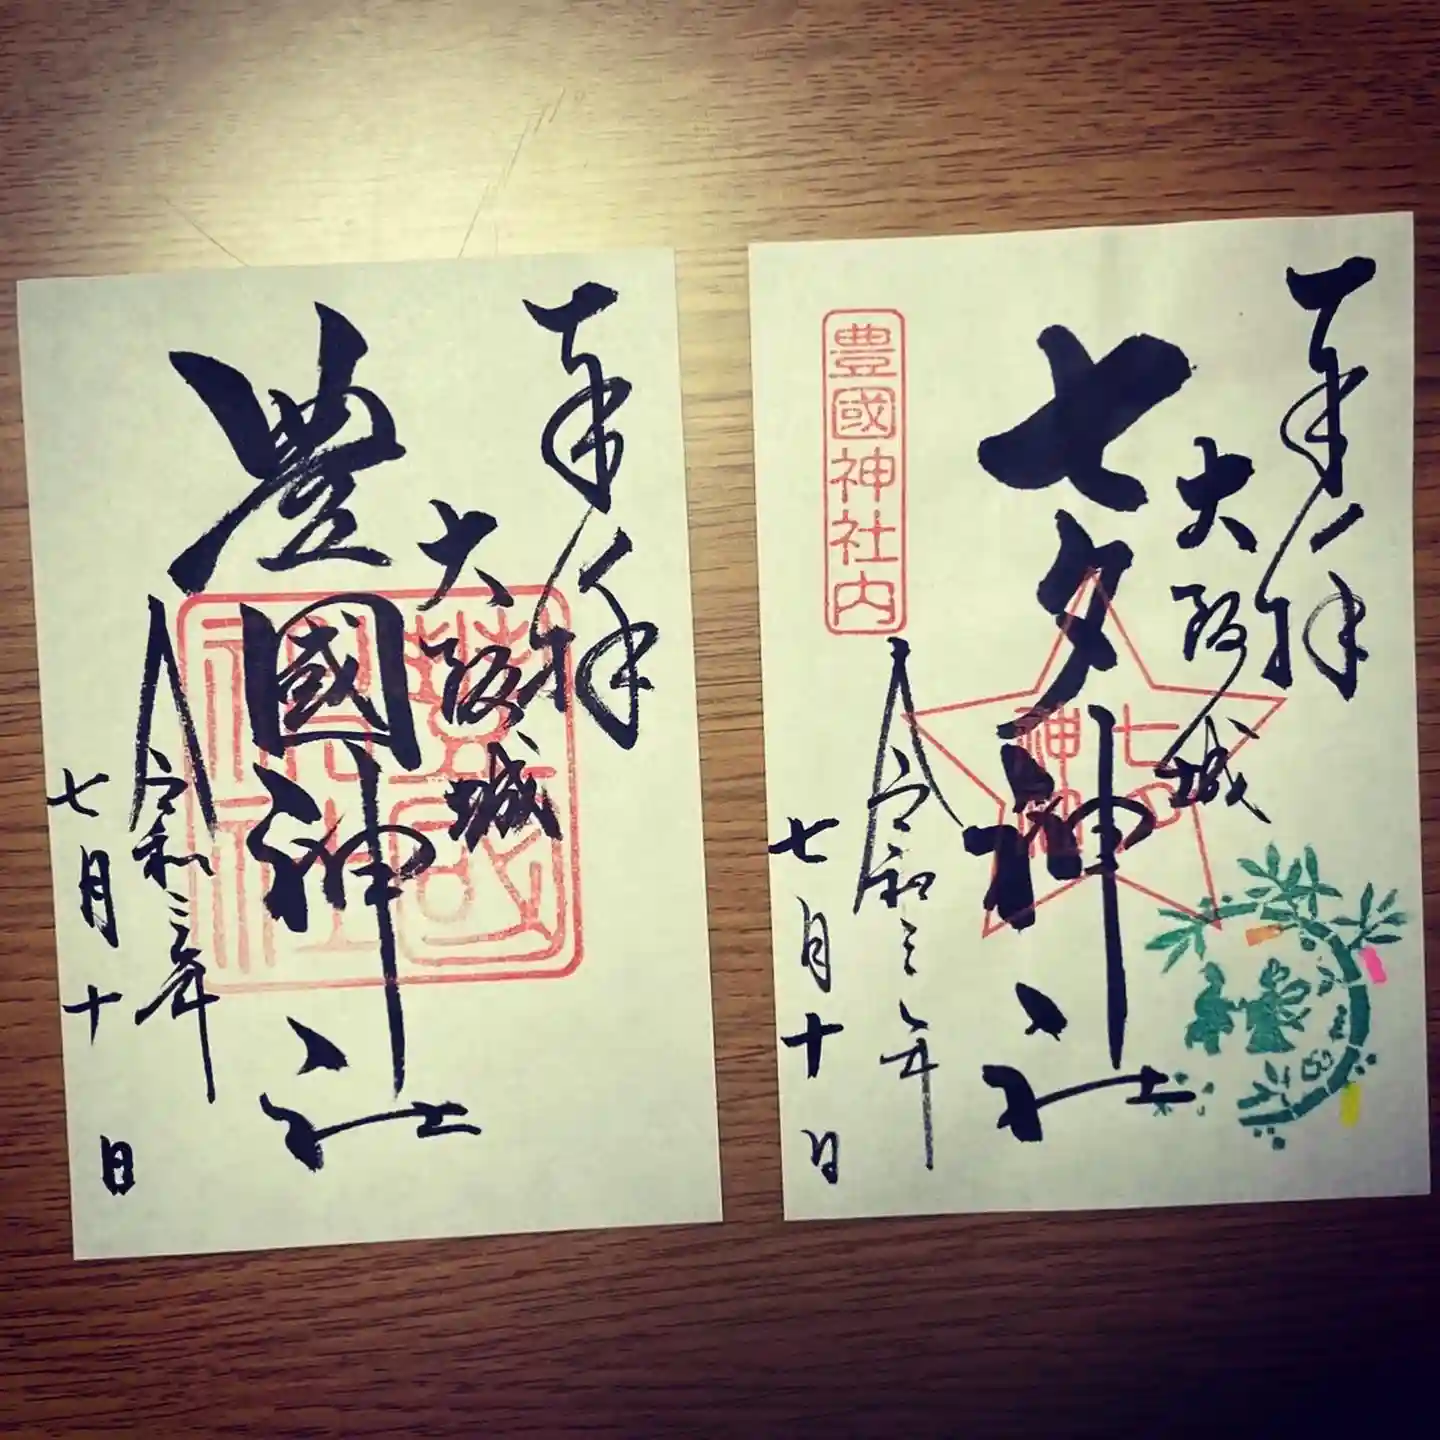 奉拝
大阪城
豊國神社
令和三年
七月十日
豊國神社
奉拝
大阪城
七夕神社
豊國神社内
令和三年
七月十日